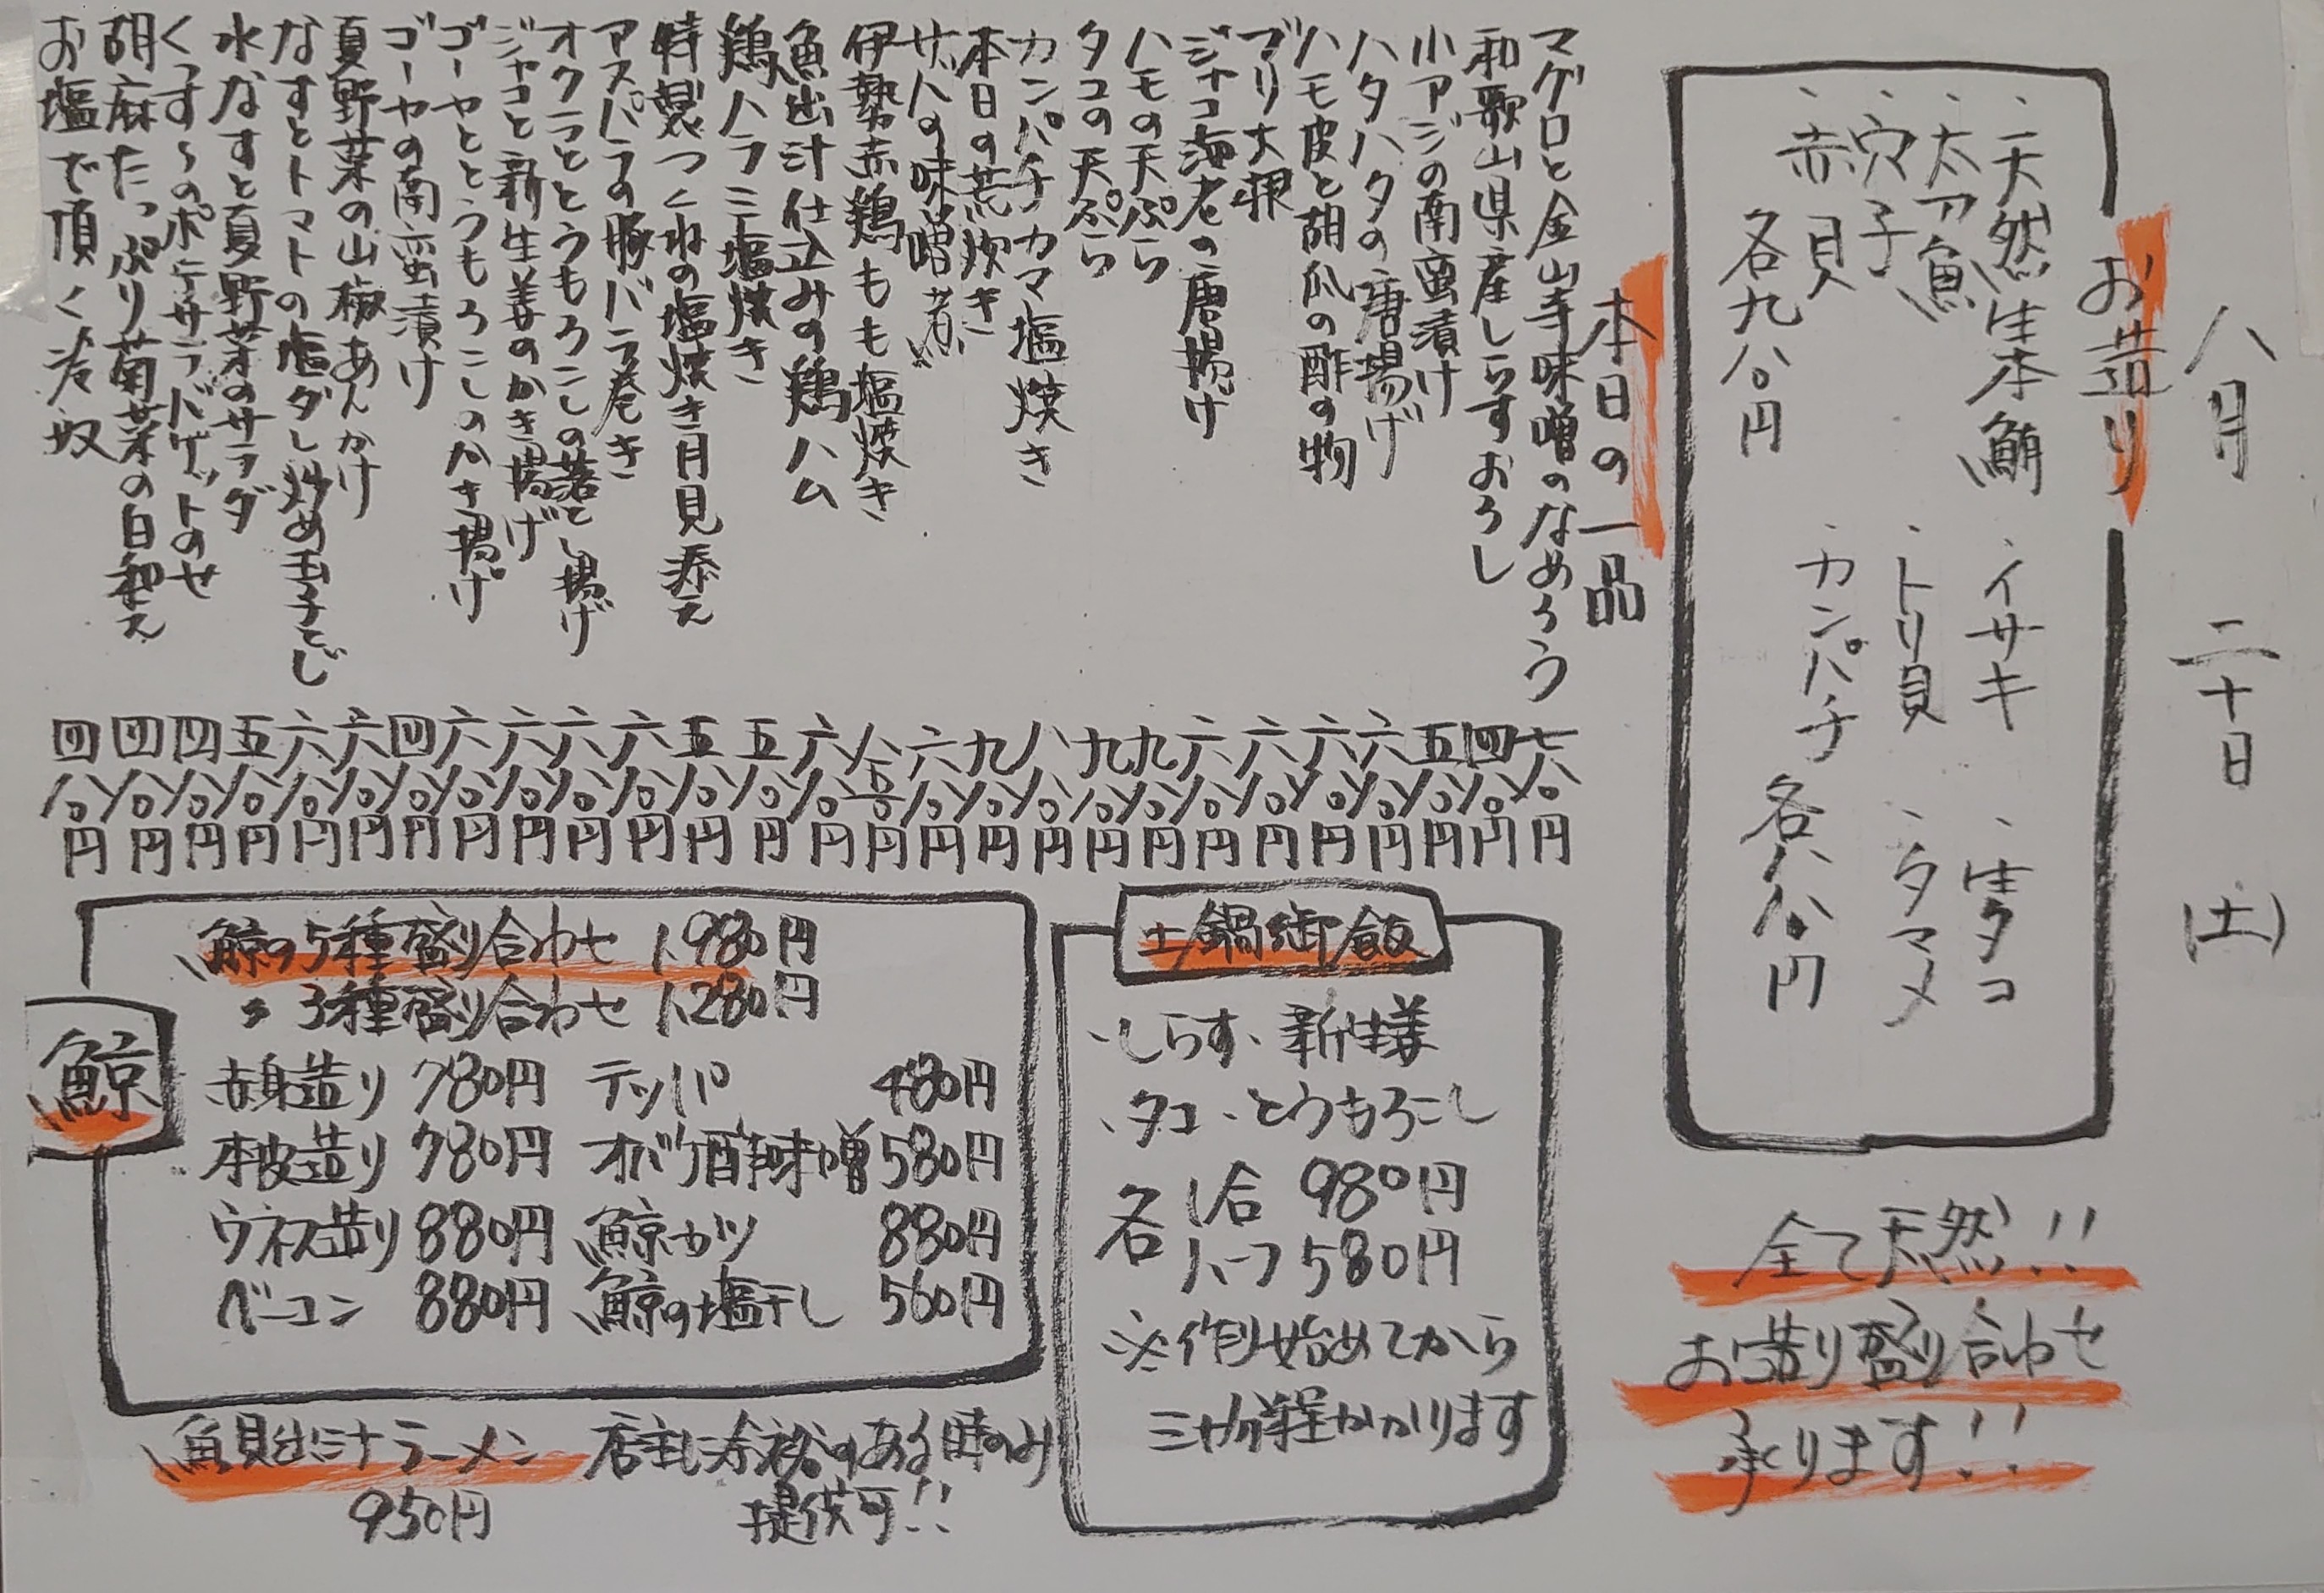 八月二十日(土)
お造り
・天然生本鮪
・太刀魚
・穴子
・赤貝
各九八〇円
・イサキ
・トリ貝
・カンパチ
・生タコ
・タマメ
各八八〇円
全て天然!!
お造り盛り合わせ
承ります!!
本日の一品
マグロと金山寺味噌のなめろう 七八〇円
和歌山県産しらすおろし 四八〇円
小アジの南蛮漬け 五八〇円
ハタハタの唐揚げ 六八〇円
ハモ皮と胡瓜の酢の物 六八〇円
ブリ大根 六八〇円
ジャコ海老の唐揚げ 六八〇円
ハモの天ぷら 九八〇円
タコの天ぷら 九八〇円
カンパチカマ塩焼き 八八〇円
本日の荒炊き 九八〇円
サバの味噌煮 六八〇円
伊勢赤鶏もも塩焼き 八五〇円
魚出汁仕込みの鶏ハム 六八〇円
鶏ハラミ塩焼き 五八〇円
特製つくねの塩焼き月見添え 五八〇円
アスパラの豚バラ巻き 六八〇円
オクラととうもろこしの落とし揚げ 六八〇円
ジャコと新生姜のかき揚げ 六八〇円
ゴーヤととうもろこしのかき揚げ 六八〇円
ゴーヤの南蛮漬け 四八〇円
夏野菜の山椒あんかけ 六八〇円
なすとトマトの塩ダレ炒め玉子とじ 六八〇円
水なすと夏野菜のサラダ 五八〇円
くっす〜のポテサラバゲットのせ 四八〇円
胡麻たっぷり菊菜の白和え 四八〇円
お塩で頂く冷奴 四八〇円
土鍋御飯
・しらす・新生姜
・タコ・とうもろこし
各 1合 980円
ハーフ 580円
※作り始めてから
三十分程かかります
鯨
鯨の5種盛り合わせ 1,980円
〃3種盛り合わせ 1,280円
赤身造り 780円 テッパ 480円
本皮造り 780円 オバケ酢味噌 580円
ウネス造り 880円 鯨カツ 880円
ベーコン 880円 鯨の塩干し 560円
魚貝出汁ラーメン 店主に余裕のある時のみ
950円 提供可!!